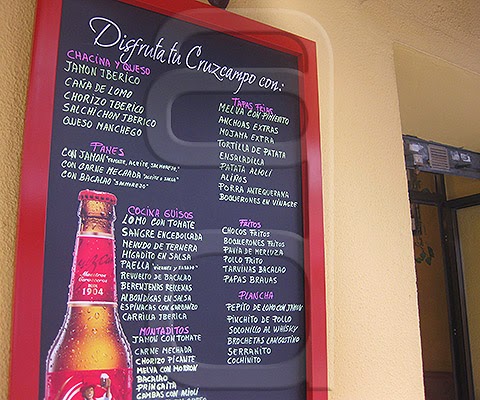 Disfruta tu Cruzcampo con:
CHACINA Y QUESO
JAMON IBERICO
CAÑA DE LOMO
CHORIZO IBERICO
SALCHICHON IBERICO
QUESO MANCHEGO
PANES
CON JAMON "TOMATE, ACEITE, SALMOREJO"
CON CARNE MECHADA "ACEITE O SALSA"
CON BACALAO "SALMOREJO"
COCINA GUISOS
LOMO CON TOMATE
SANGRE ENCEBOLLADA
MENUDO DE TERNERA
HIGADITO EN SALSA
PAELLA "VIERNES Y SABADO"
REVUELTO DE BACALAO
BERENJENAS RELLENAS
ALBONDIGAS EN SALSA
ESPINACAS CON GARBANZO
CARRILLA IBERICA
MONTADITOS
JAMON CON TOMATE
CARNE MECHADA
CHORIZO PICANTE
MELVA CON MORRON
BACALAO
PRINGAITA
GAMBAS CON ALIOLI
TAPAS FRIAS
MELVA CON PIMIENTO
ANCHOAS EXTRAS
MOJAMA EXTRA
TORTILLA DE PATATA
ENSALADILLA
PATATA ALIOLI
ALIÑOS
PORRA ANTEQUERANA
BOQUERONES EN VINAGRE
FRITOS
CHOCOS FRITOS
BOQUERONES FRITOS
PAVIA DE MERLUZA
POLLO FRITO
TARVINAS BACALAO
PAPAS BRAVAS
PLANCHA
PEPITO DE LOMO CON JAMON
PINCHITO DE POLLO
SOLOMILLO AL WHISKY
BROCHETAS LANGOSTINO
SERRANITO
COCHINITO
Maestros
Cerveceros
DESDE
1904